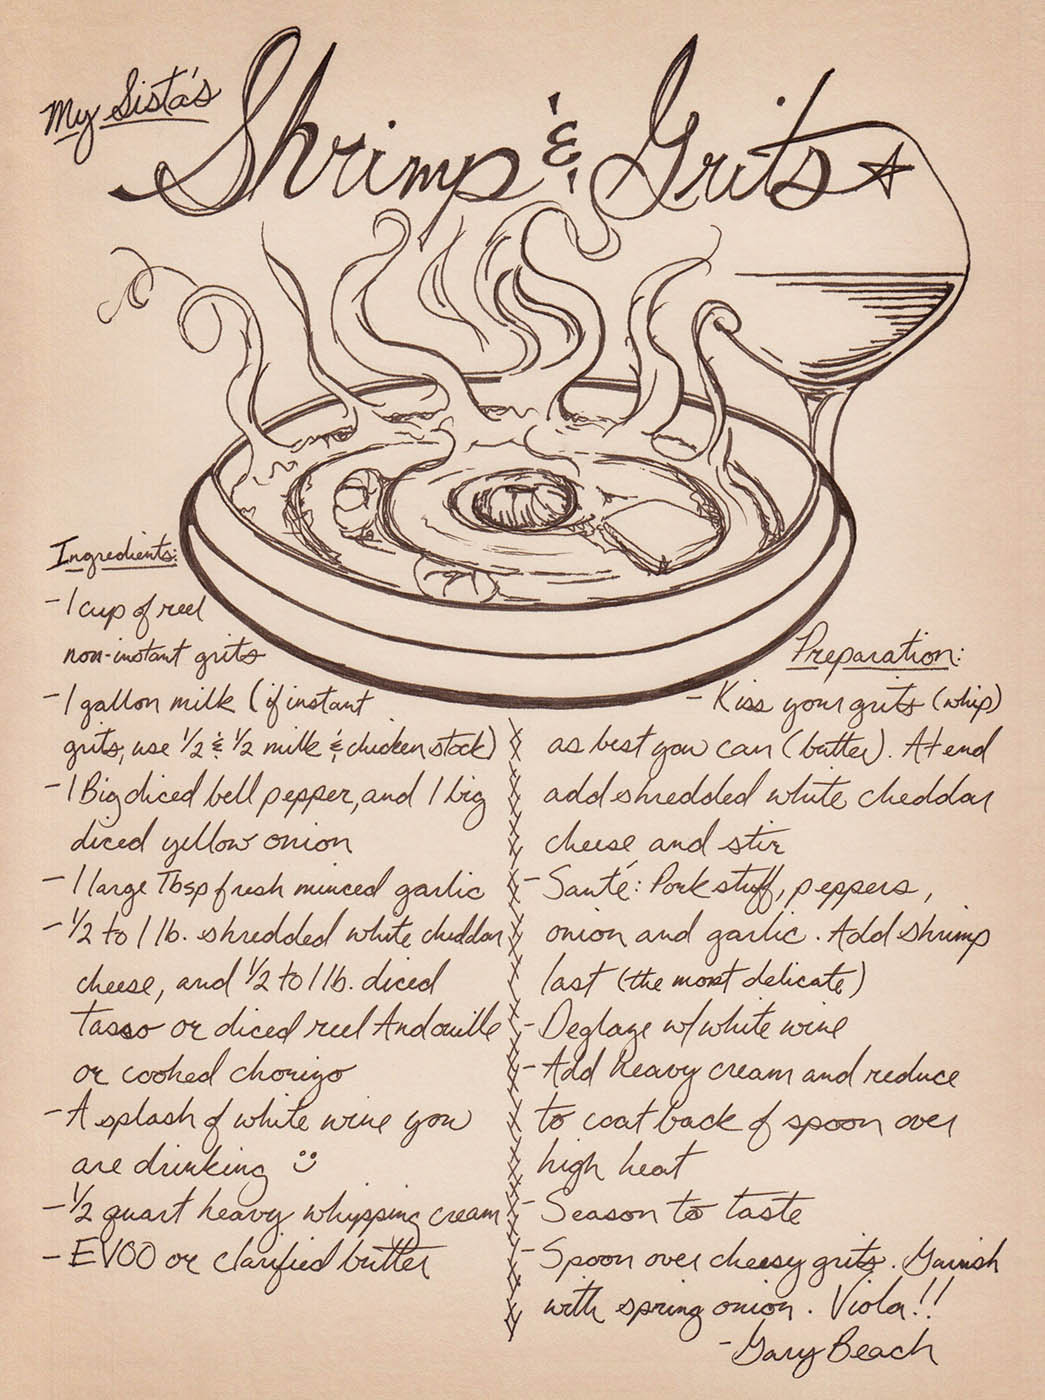 My Sista's
Shrimp & Grits
Ingredients:
- 1 cup of reel
non-instant grits
- 1 gallon milk (if instant
grits, use 1/2 & 1/2 milk & chicken stock)
- 1 Big diced bell pepper, and 1 big
diced yellow onion
- 1 large Tbsp fresh minced garlic
- 1/2 to 1 lb. shredded white cheddar
cheese, and 1/2 to 1 lb. diced
Tasso or diced reel Andouille
or cooked chorizo
- A splash of white wine you
are drinking
- 1/2 quart heavy whipping cream
- EVOO or clarified butter
Preparation:
- Kiss your grits (whip)
as best you can (butter). At end
add shredded white cheddar
cheese and stir
- Santé: Pork stuff, peppers,
onion and garlic. Add shrimp
last (the most delicate)
- Deglaze w/ white wine
- Add heavy cream and reduce
to coat back of spoon over
high heat
- Season to taste
- Spoon over cheesy grits. Garnish
with spring onion. Viola!!
- Gary Beach